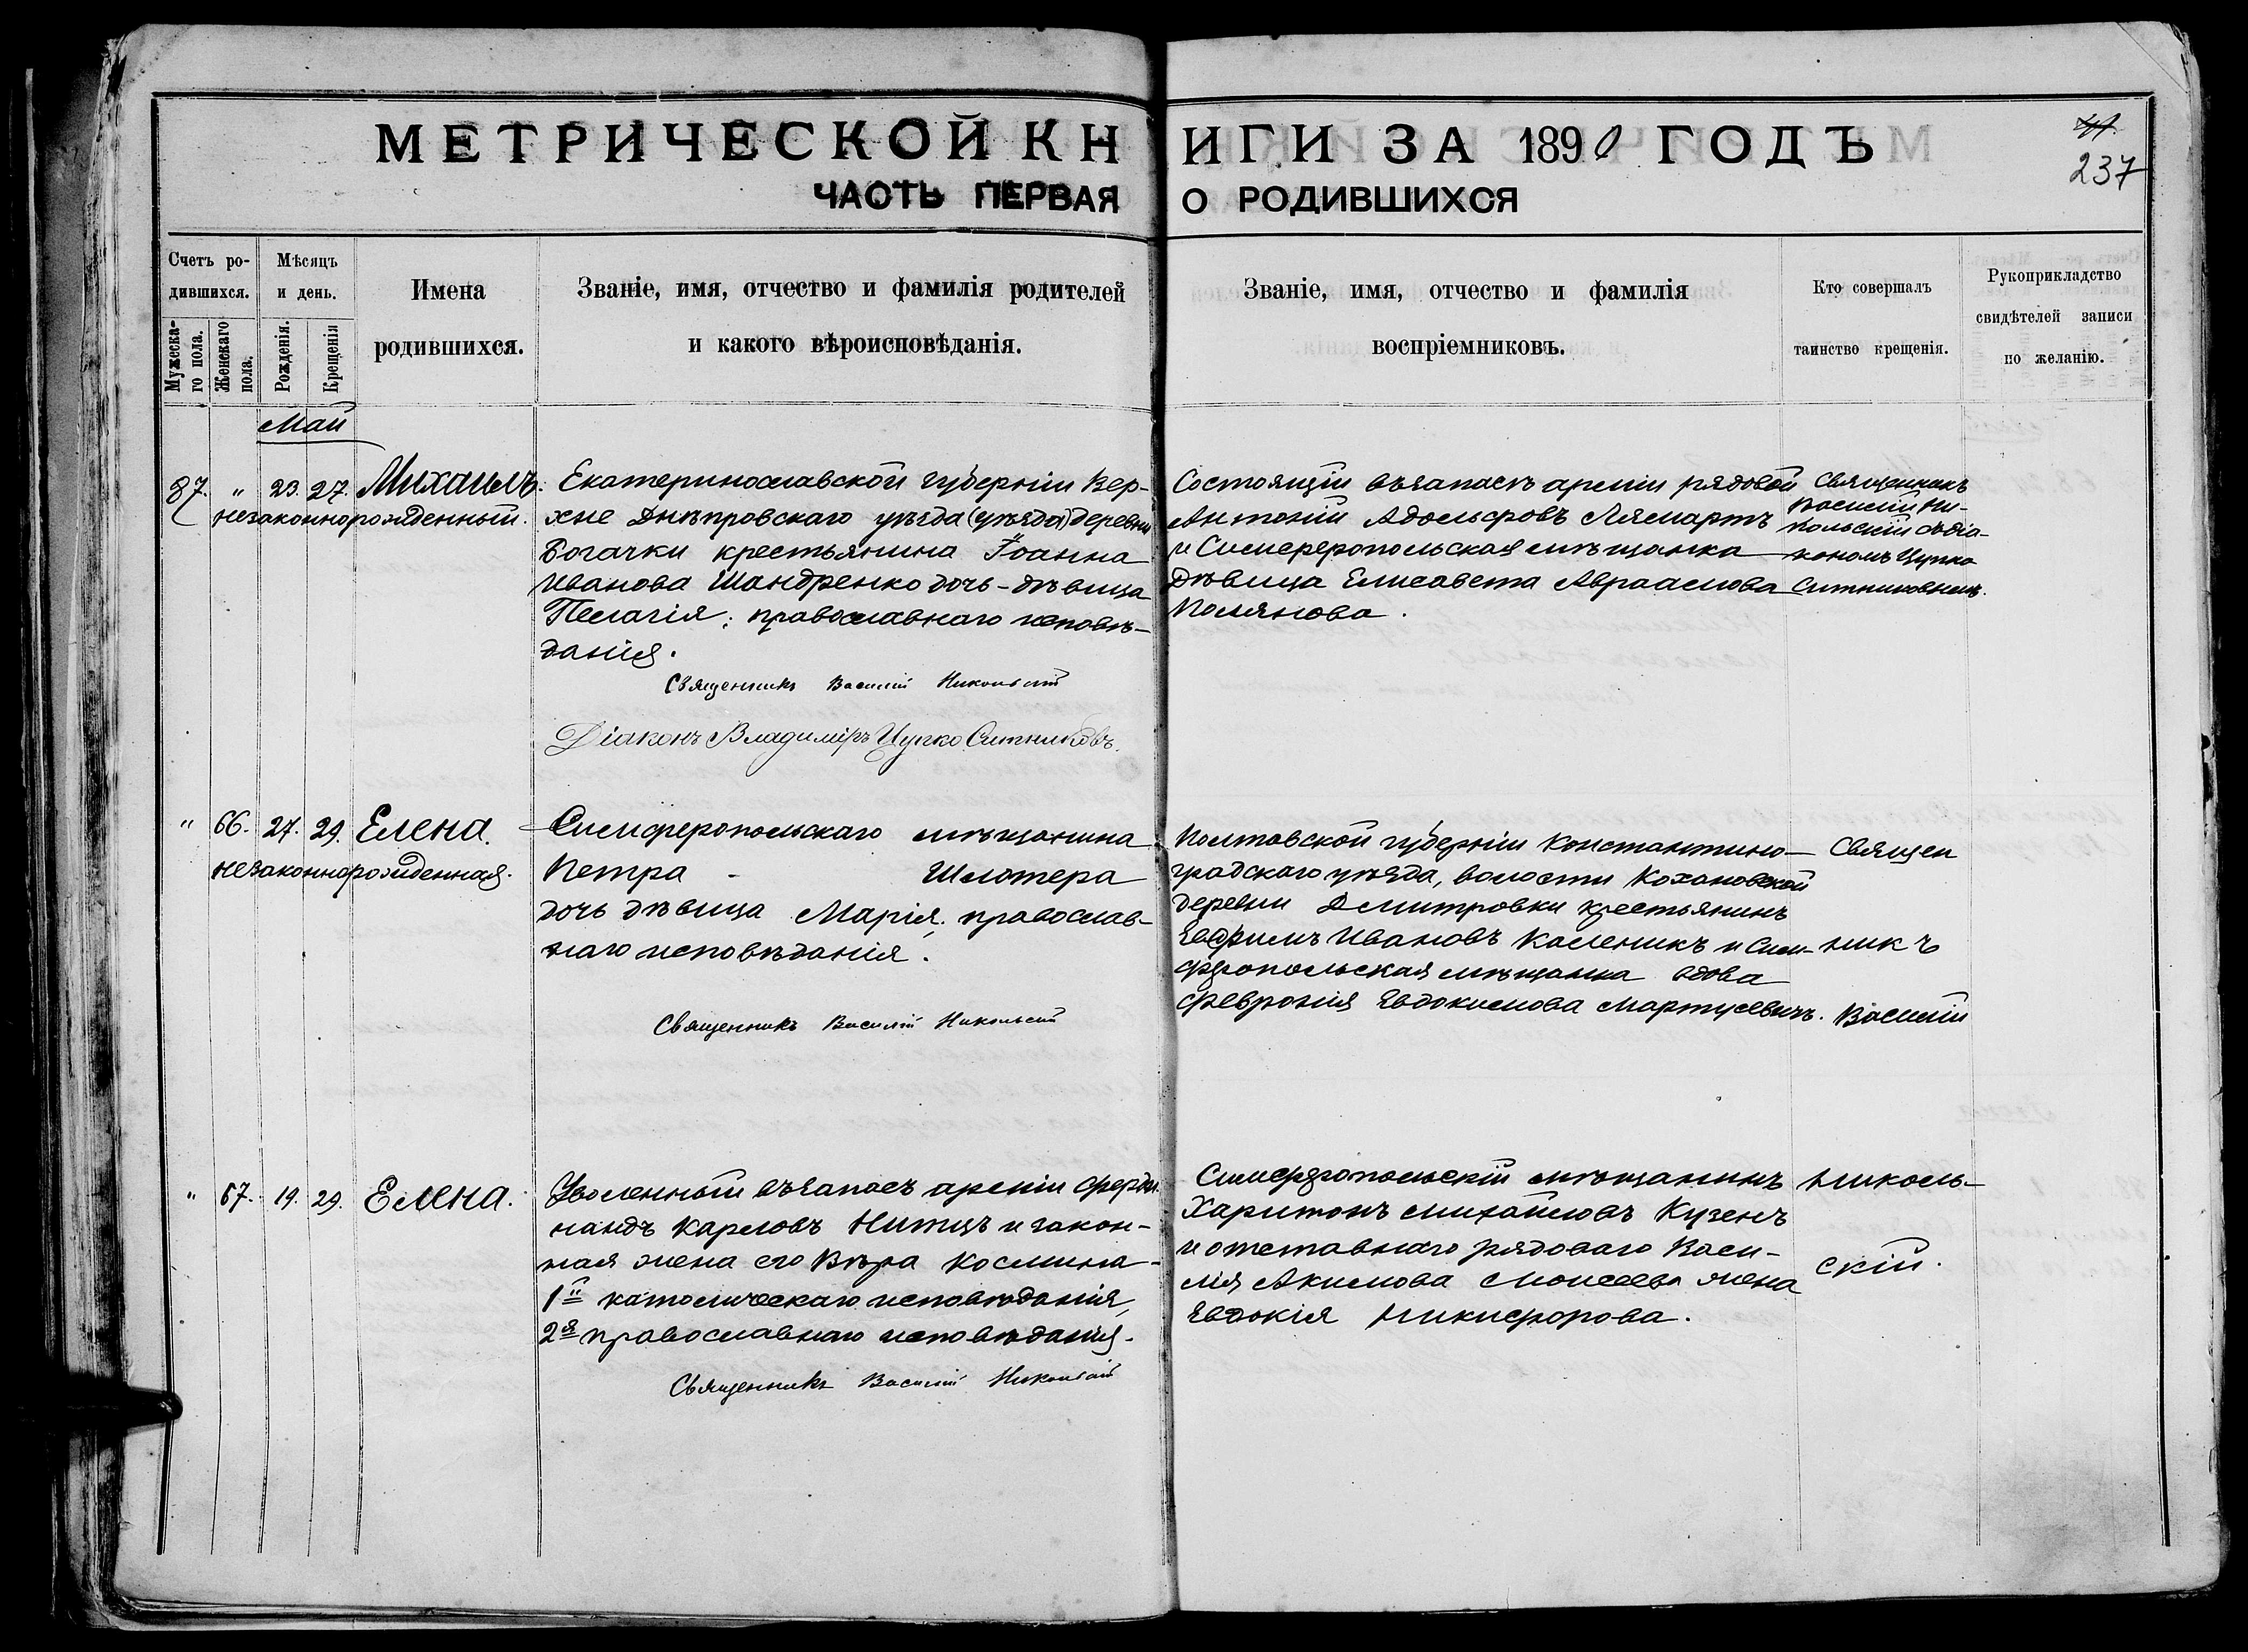 МЕТРИЧЕСКОЙ КНИГИ ЗА 1890 ГОДЪ
237
ЧАСТЬ ПЕРВАЯ О РОДИВШИХСЯ
Счетъ ро-
дившихся.
Мужеска-
го пола.
Женскаго
пола.
Мѣсяцъ
и день.
Рожденія.
Крещенія
Имена
родившихся.
Званіе, имя, отчество и фамилія родителей
и какого вѣроисповѣданія.
Званіе, имя, отчество и фамилія
воспріемниковъ.
Кто совершалъ
таинство крещенія.
Рукоприкладство
свидѣтелей записи
по желанію.
Май
87. " 23. 27. Михаилъ.
незаконнорожденный.
Екатеринославской губерніи Вер-
хне Днѣпровскаго уѣзда (уѣзда) деревни
Богачки крестьянина Іоанна
Иванова Шандренко дочь-дѣвица
Пелагія; православнаго исповѣ-
данія.
Священникъ Василій Никольскій
Діаконъ Владиміръ Цупко Ситниковъ.
Состоящій въ запасѣ арміи рядовой
Антоній Адольфовъ Лямартъ
и Симферопольская мѣщанка
дѣвица Елисавета Авраамова
Полянова.
Священникъ
Василій Ни-
кольскій съ діа-
кономъ Цупко
Ситниковымъ.
" 66. 27. 29. Елена.
незаконнорожденная.
Симферопольскаго мѣщанина
Петра - Шлотера
дочь дѣвица Марія; православ-
наго исповѣданія.
Священникъ Василій Никольскій
Полтавской губерніи Константино-
градскаго уѣзда, волости Кохановской
деревни Дмитровки крестьянинъ
Ефимъ Ивановъ Каленикъ и Сим-
фропольская мѣщанка вдова
Февронія Евдокимова Мартусевичъ.
Священ
никъ
Василій
" 67. 19. 29. Елена.
Уволенный въ запасъ арміи Ферди-
нандъ Карловъ Нитцъ и закон-
ная жена его Вѣра Космина-
1й католическаго исповѣданія,
2я православнаго исповѣданія.
Священникъ Василій Никольскій
Симфропольскій мѣщанинъ
Харитонъ Михайловъ Кузенъ
и отставнаго рядоваго Васи-
лія Акимова Моисеева жена
Евдокія Никифорова.
Николь-
скій.